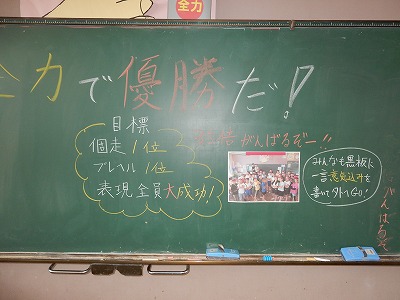 全力
全力で優勝だ!
目標
個走 1位
ブレヘル 1位
表現全員大成功!
がんばるぞー!!
みんなも黒板に
一言意気込みを
書いて外へGO!
がんばるぞ